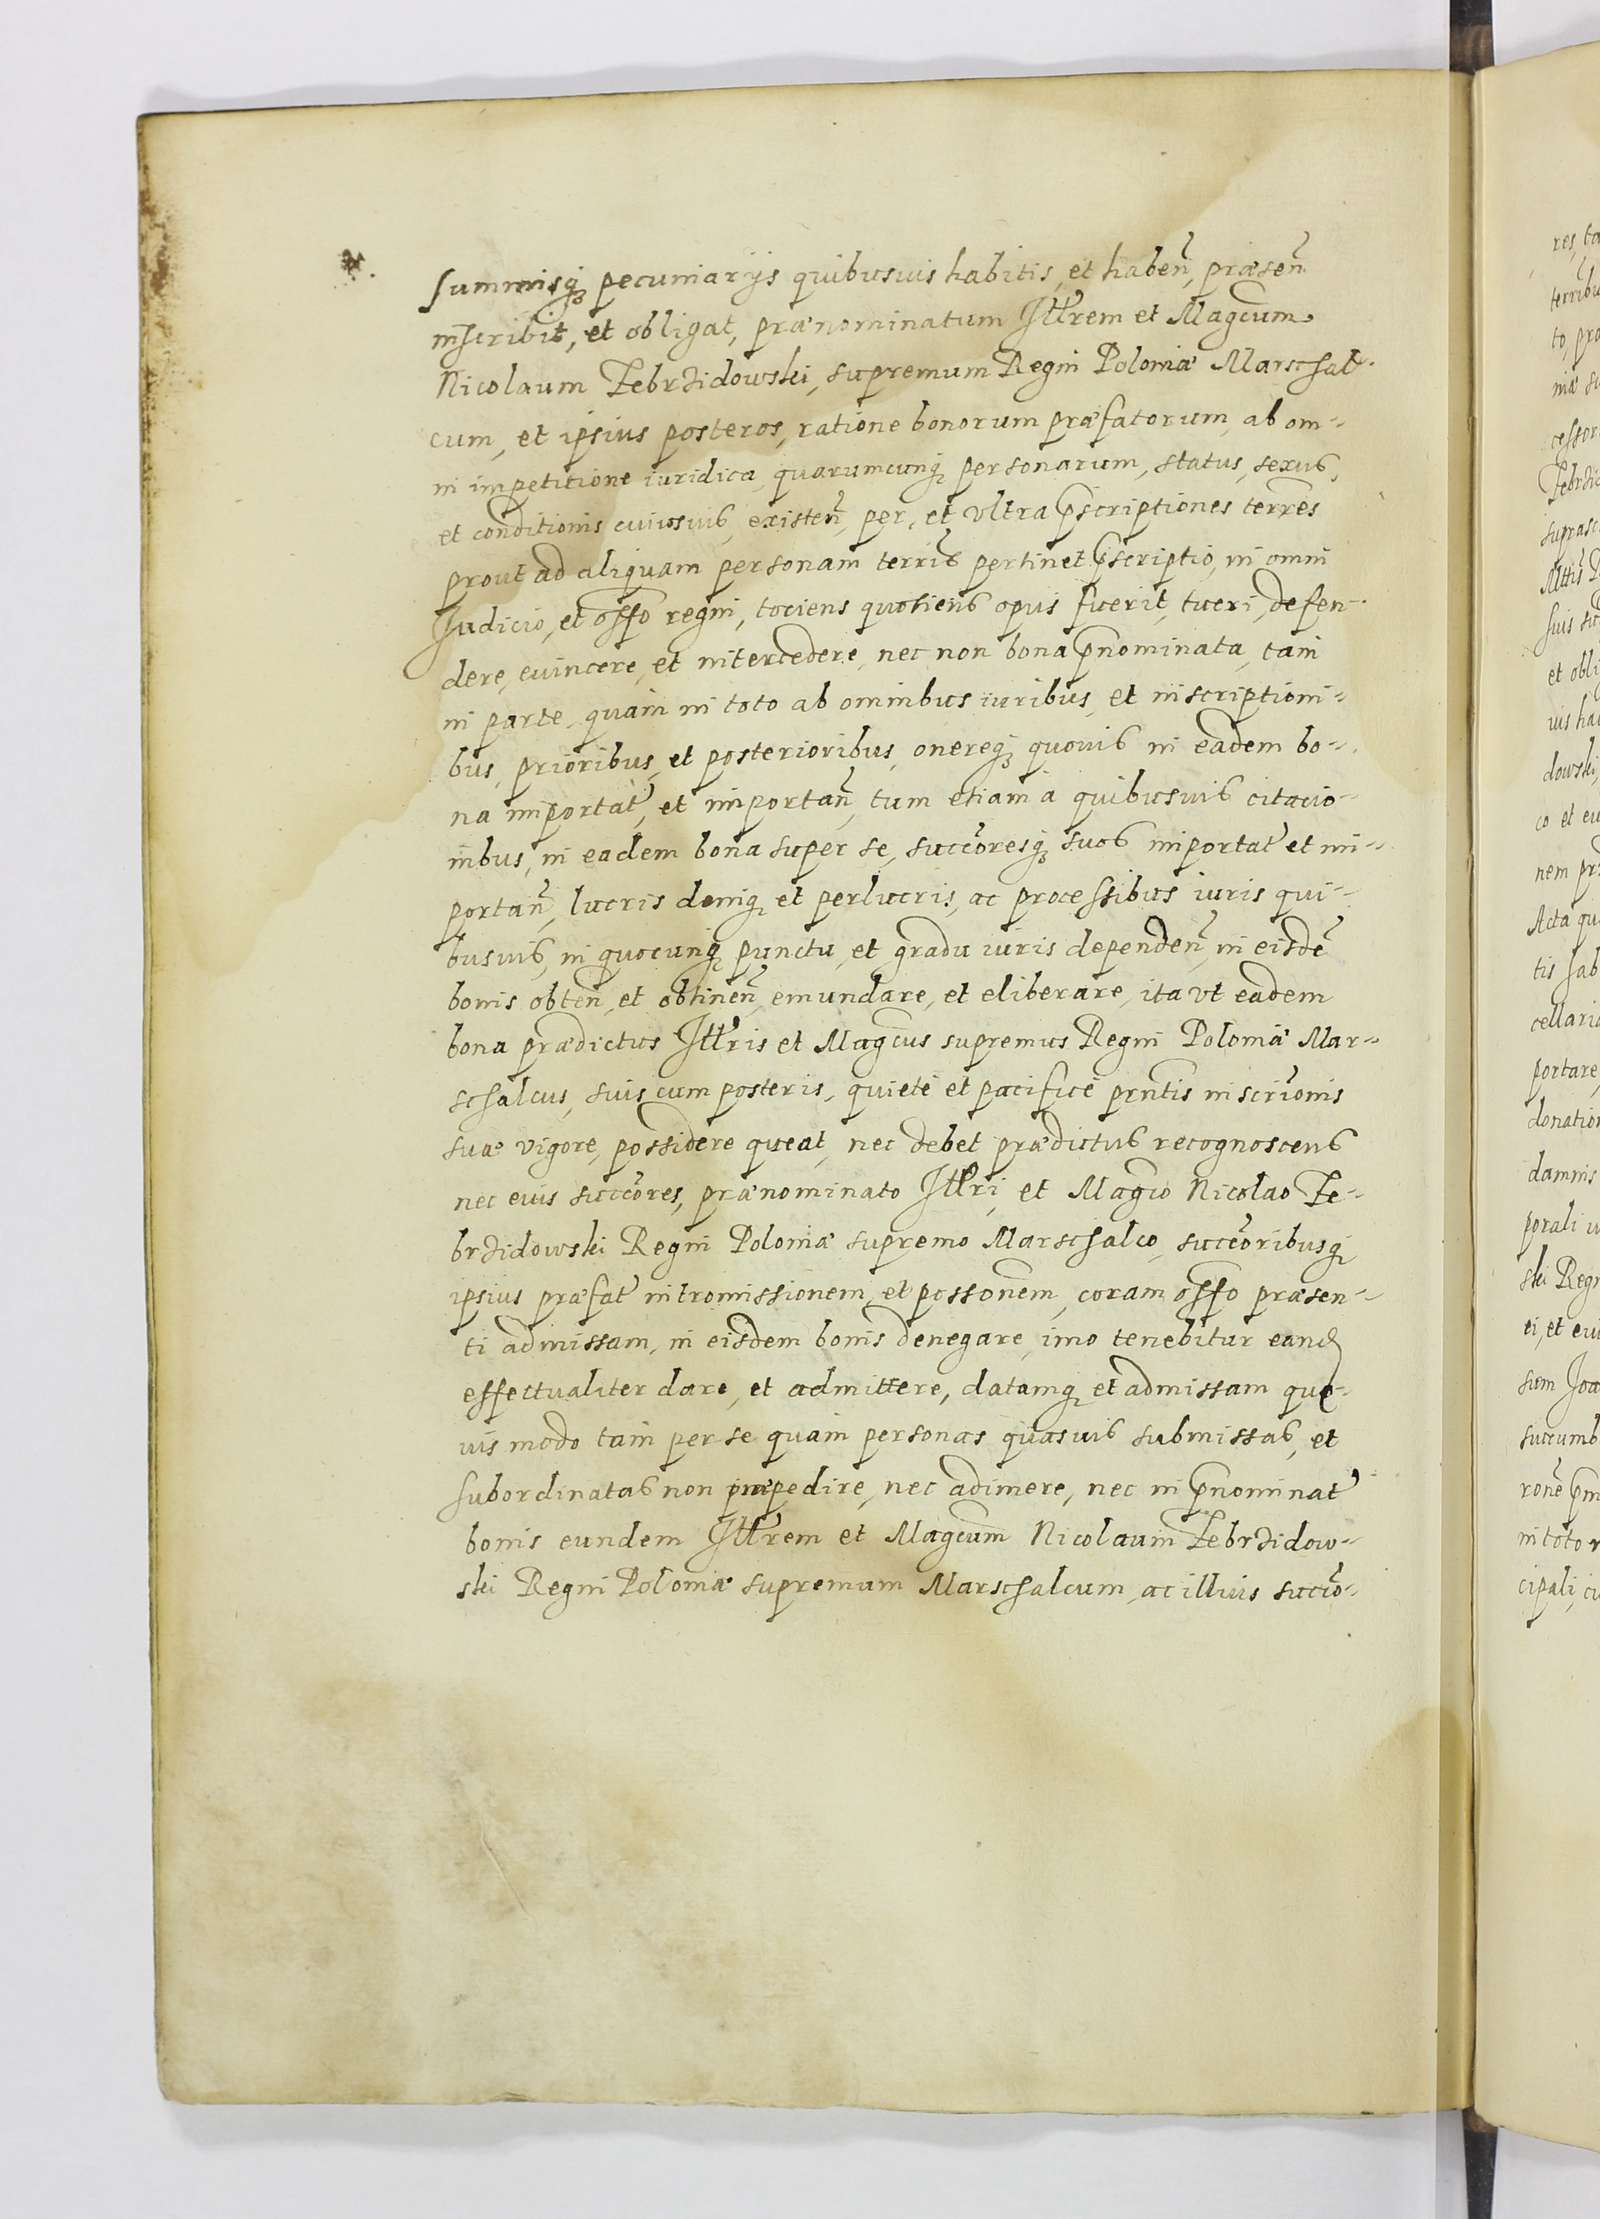 summisq₃ pecuniarijs quibusuis habitis, et habeñ, præseñ
inscribit, et obligat, prænominatum Illrem et Magcum
Nicolaum Zebrzidowski, supremum Regni Poloniæ Marschal-
cum, et ipsius posteros, ratione bonorum præfatorum, ab om-
ni impetitione iuridica, quarumcunq₃ personarum, status, sexus,
et conditionis cuiusuis, existeñ, per, et vltra p̄scriptiones terres
prout ad aliquam personam terris pertinet p̄scriptio, in omni
Iudicio, et offo regni, tociens quotiens opus fuerit, tueri, defen-
dere, euincere, et intercedere, nec non bona p̄nominata, tam
in parte, quam in toto ab omnibus iuribus, et inscriptioni-
bus, prioribus, et posterioribus, onereq₃ quouis in eadem bo-
na importat, et importañ, tum etiam à quibusuis citacio-
nibus, in eadem bona super se, succōresq₃ suos importat et im-
portañ, lucris deniq₃ et perlucris, ac processibus iuris qui-
busuis, in quocunq₃ punctu, et gradu iuris dependeñ, in eisdē
bonis obteñ, et obtineñ, emundare, et eliberare, ita vt eadem
bona prædictus Illris et Magcus supremus Regni Poloniæ Mar-
schalcus, suis cum posteris, quietè et pacificè prntis inscriōnis
suæ vigore, possidere queat, nec debet prædictus recognoscens
nec eius succōres, prænominato Illri, et Magco Nicolao Ze-
brzidowski Regni Poloniæ supremo Marschalco, succōribusq₃
ipsius præfat intromissionem, et possonem, coram offo præsen-
ti admissam, in eisdem bonis denegare, imo tenebitur eand
effectualiter dare, et admittere, datamq₃ et admissam quo-
uis modo tam per se quam personas quasuis submissas, et
subordinatas non præpedire, nec adimere, nec in p̄nominat
bonis eundem Illrem et Magcum Nicolaum Zebrzidow-
ski Regni Poloniæ supremum Marschalcum, ac illius succō-